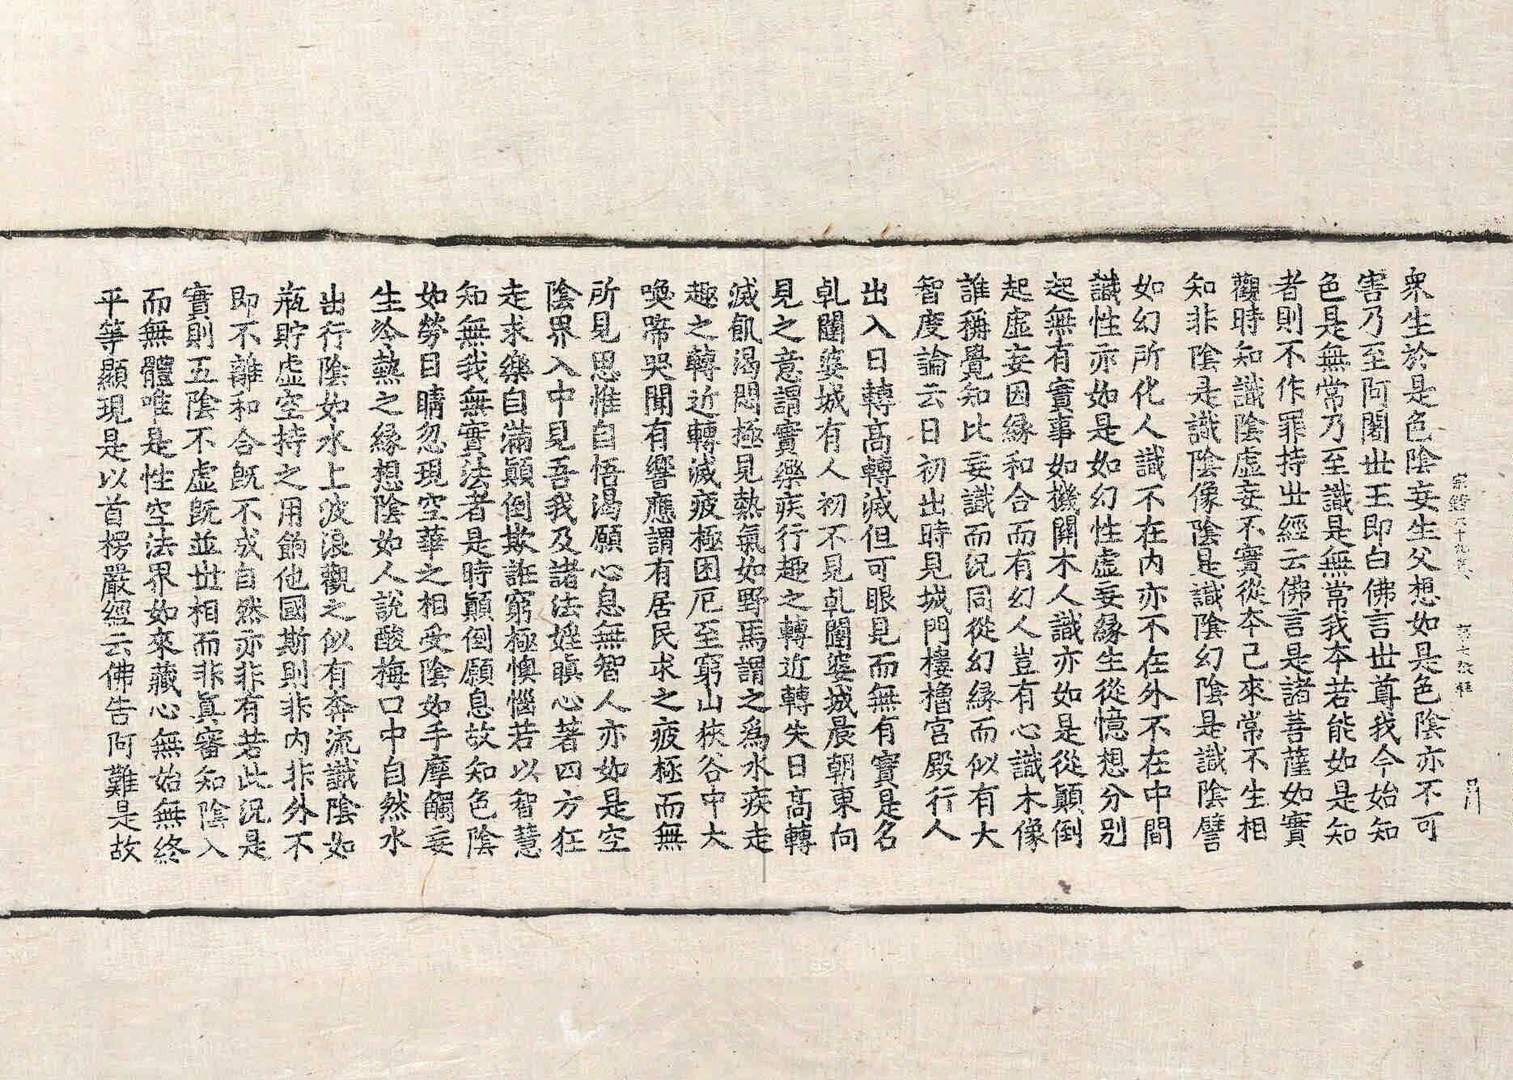 衆生於是色陰妄生父想如是色陰亦不可
害乃至阿闍世王即白佛言世尊我今始知
色是無常乃至識是無常我本若能如是知
者則不作罪持世經云佛言是諸菩薩如實
觀時知識陰虛妄不實從本已來常不生相
知非陰是識陰像陰是識陰幻陰是識陰譬
如幻所化人識不在内亦不在外不在中間
識性亦如是如幻性虛妄緣生從憶想分別
起無有實事如機關木人識亦如是從顚倒
起虛妄因緣和合而有幻人豈有心識木像
誰稱覺知比妄識而況同從幻緣而似有大
智度論云日初出時見城門樓櫓宮殿行人
出入日轉高轉滅但可眼見而無有實是名
乹闥婆城有人初不見乹闥婆城晨朝東向
見之意謂實樂疾行趣之轉近轉失日高轉
滅飢渴悶極見熱氣如野馬謂之爲水疾走
趣之轉近轉滅疲極困厄至窮山狹谷中大
喚啼哭聞有響應謂有居民求之疲極而無
所見思惟自悟渴願心息無智人亦如是空
陰界入中見吾我及諸法婬瞋心著四方狂
走求樂自滿顚倒欺誑窮極懊惱若以智慧
知無我無實法者是時顚倒願息故知色陰
如勞目睛忽現空華之相受陰如手摩觸妄
生冷熱之緣想陰如人說酸梅口中自然水
出行陰如水上波浪觀之似有奔流識陰如
瓶貯虛空持之用餉他國斯則非内非外不
即不離和合旣不成自然亦非有若此況是
實則五陰不虛旣並世相而非眞審知陰入
而無體唯是性空法界如來藏心無始無終
平等顯現是以首楞嚴經云佛告阿難是故